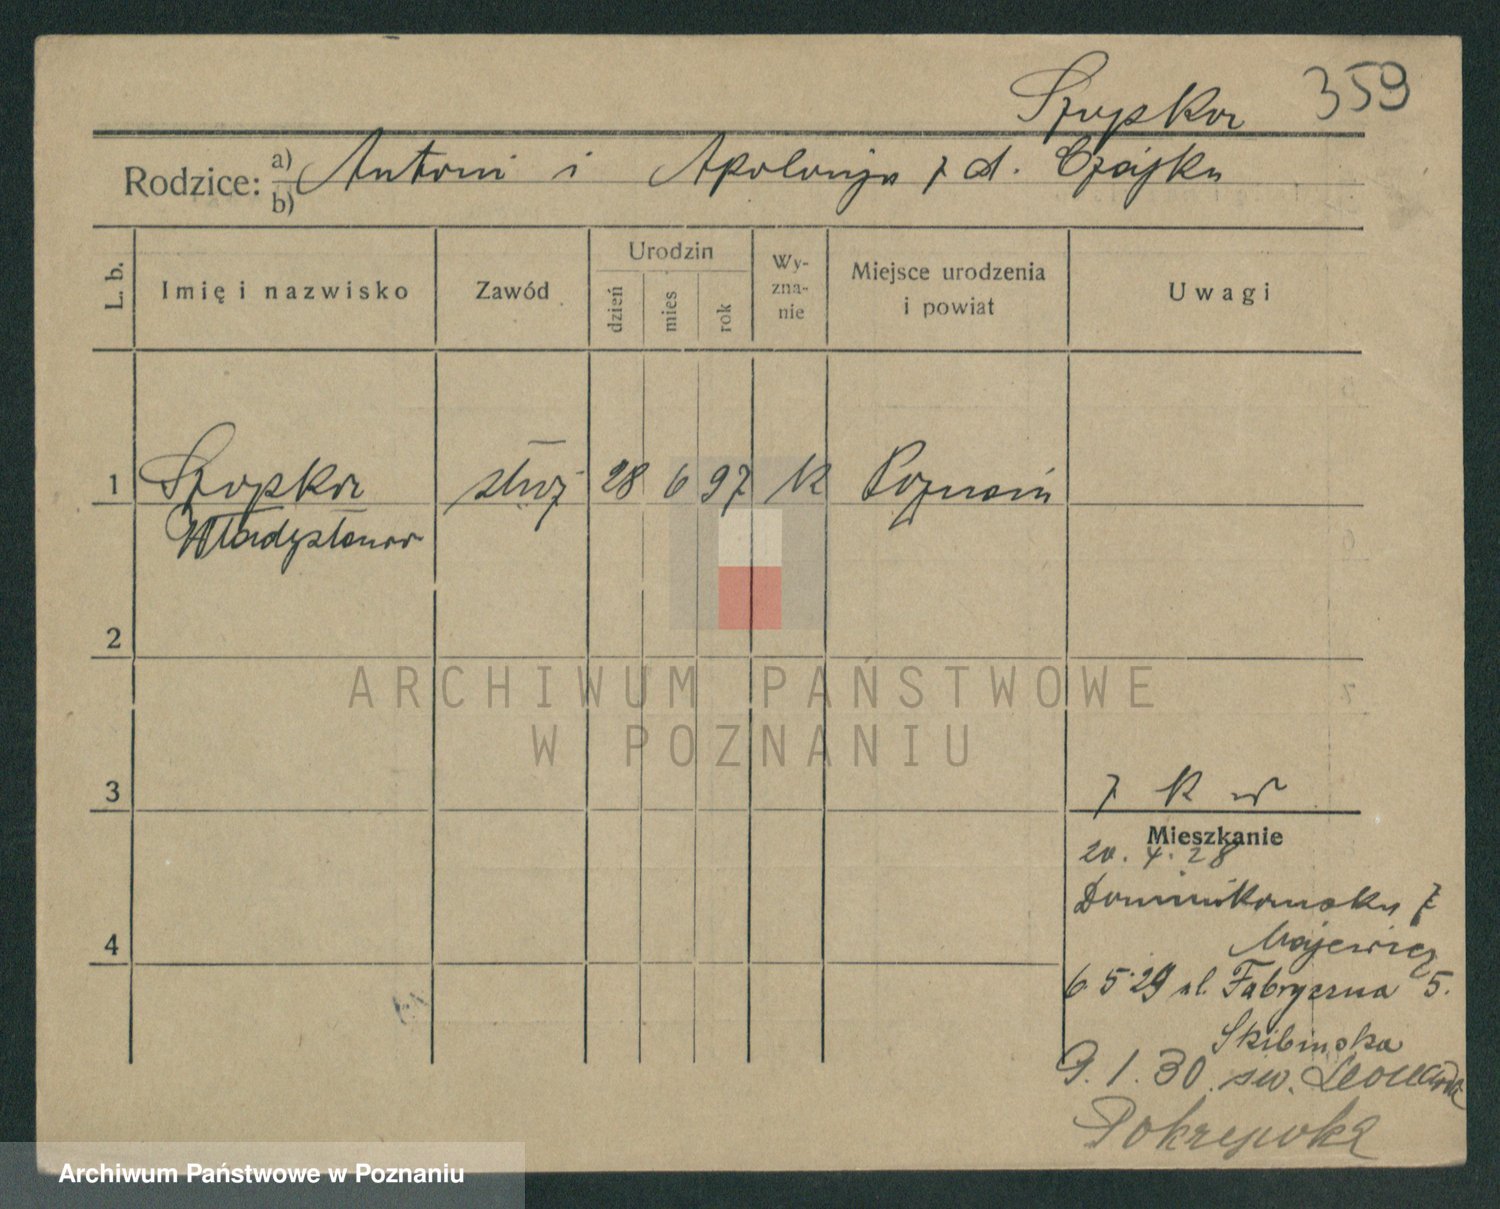 359
Szopka
Rodzice: a) b) Antoni i Apolonja z d. Czajka
L. b.
Imię i nazwisko
Zawód
Urodzin
dzień
mies
rok
Wy-
zna-
nie
Miejsce urodzenia
i powiat
Uwagi
1 28 6 97 K Poznań
Władysława
2
3
4
ARCHIWUM PAŃSTWOWE
W POZNANIU
Mieszkanie
20. 4. 28
Dominikańska 7
Majewicz
6.5.29 ul. Fabryczna 5.
Skibińska
9. 1. 30. św. Leonarda
Archiwum Państwowe w Poznaniu